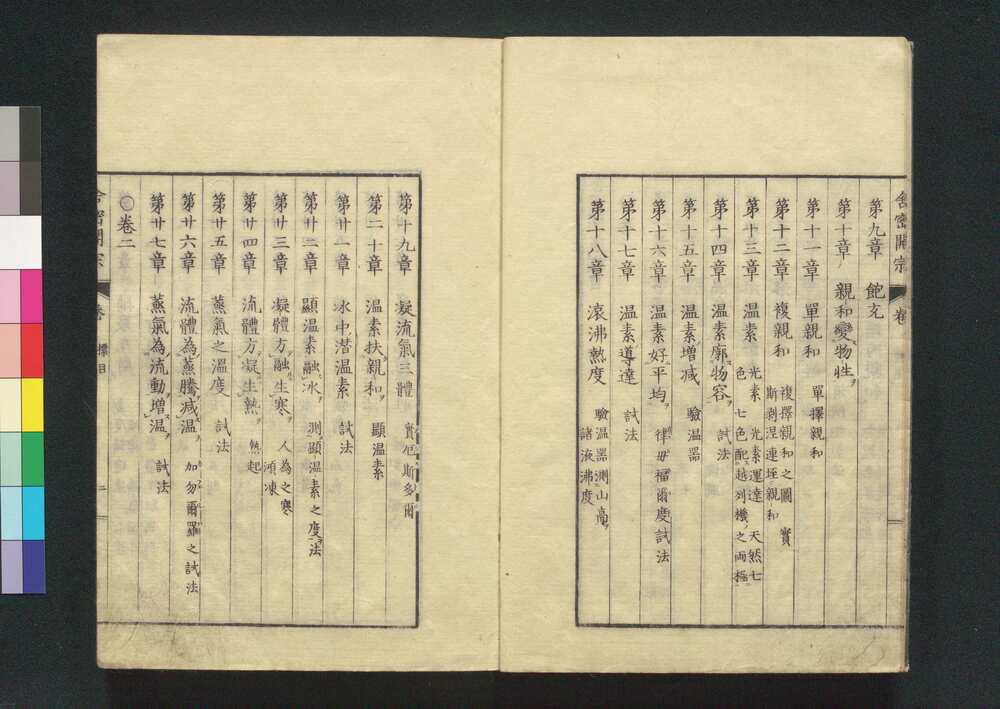 舍密開宗 卷
第九章 飽充
第十章 親和變物性
第十一章 單親和 單擇親和
第十二章 複親和 複擇親和之圖 實
斯剥涅連垤親和
第十三章 温素 光素 光素運達 天然七
色 七色配越列機之両極
第十四章 温素廓物容 試法
第十五章 温素増減 驗温器
第十六章 温素好平均 律毋福爾度試法
第十七章 温素導達 試法
第十八章 滾沸熱度 驗温器測山高
諸液沸度
第十九章 凝流氣三體
第二十章 温素扶親和 顯温素
第廿一章 冰中潜温素 試法
第廿二章 顯温素融冰 測顯温素之度法
第廿三章 凝體方融生寒 人為之寒
第廿四章 流體方凝生熱 熱起
第廿五章 蒸氣之温度 試法
第廿六章 流體為蒸騰減温 加勿爾羅之試法
第廿七章 蒸氣為流動増温 試法
○卷二
舍密開宗 卷 標目 二